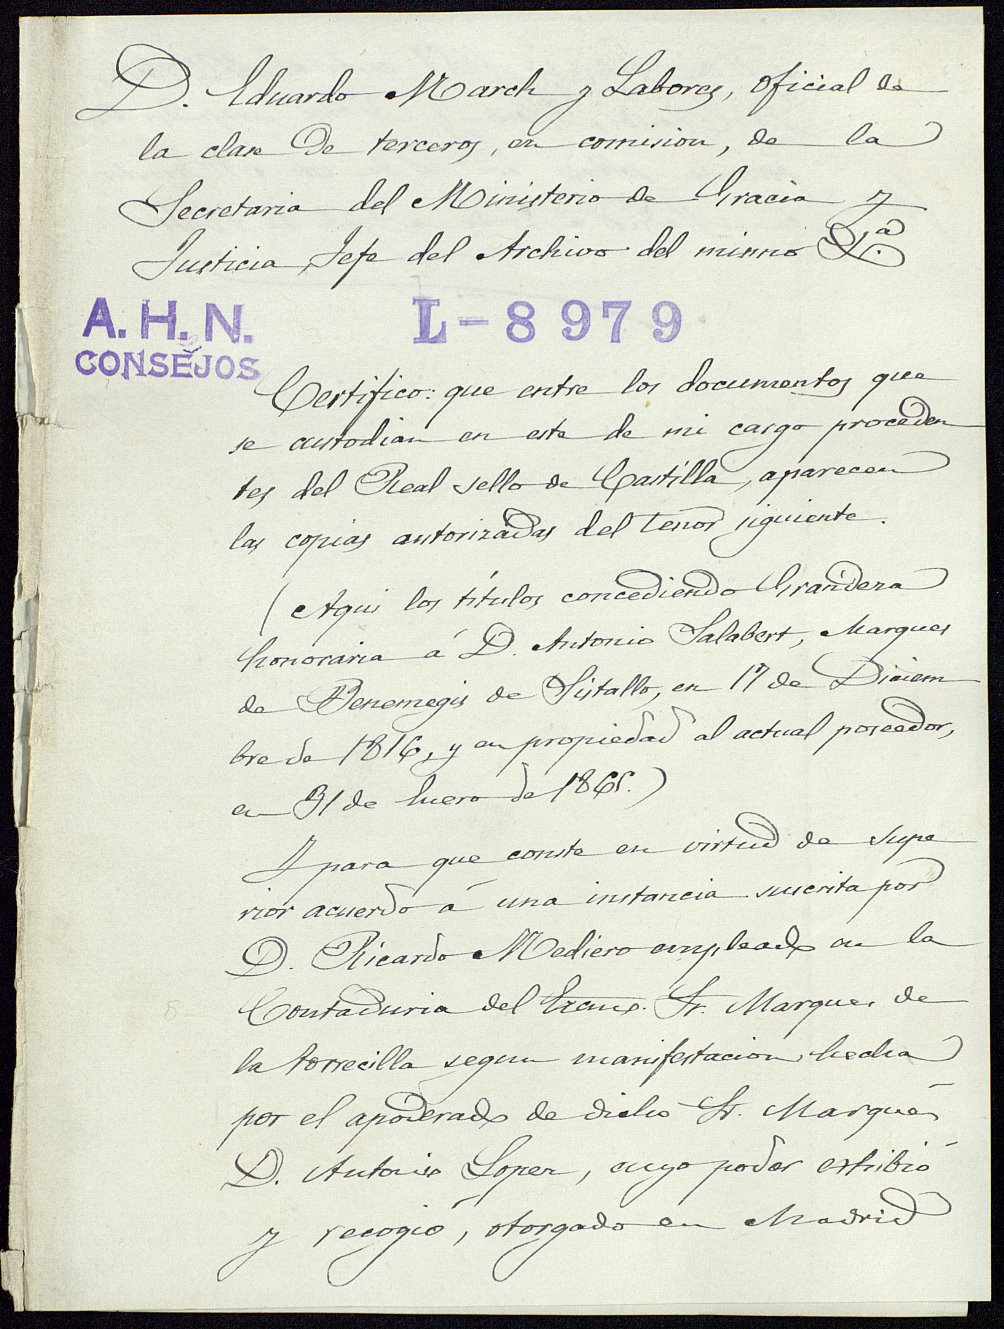 D. Eduardo March y Labores, oficial de
la clase de terceros, en comision, de la
Secretaria del Ministerio de Gracia y
Justicia, Jefe del Archivo del mismo &.ª
A. H. N.
CONSEJOS
L-8979
Certifico: que entre los documentos que
se custodian en este de mi cargo proceden
tes del Real sello de Castilla, aparecen
las copias autorizadas del tenor siguiente.
(Aqui los títulos concediendo Grandeza
honoraria á D. Antonio Salabert, Marques
de Benemegis de Sistallo, en 17 de Diciem
bre de 1816, y en propiedad al actual poseedor,
en 31 de Enero de 1865.)
Y para que conste en virtud de supe
rior acuerdo á una instancia suscrita por
D. Ricardo Mediero empleado en la
Contaduria del Excmo. Sr. Marques de
la torrecilla segun manifestacion hecha
por el apoderado de dicho Sr. Marqués
D. Antonio Lopez, cuyo poder exhibió
y recogió, otorgado en Madrid